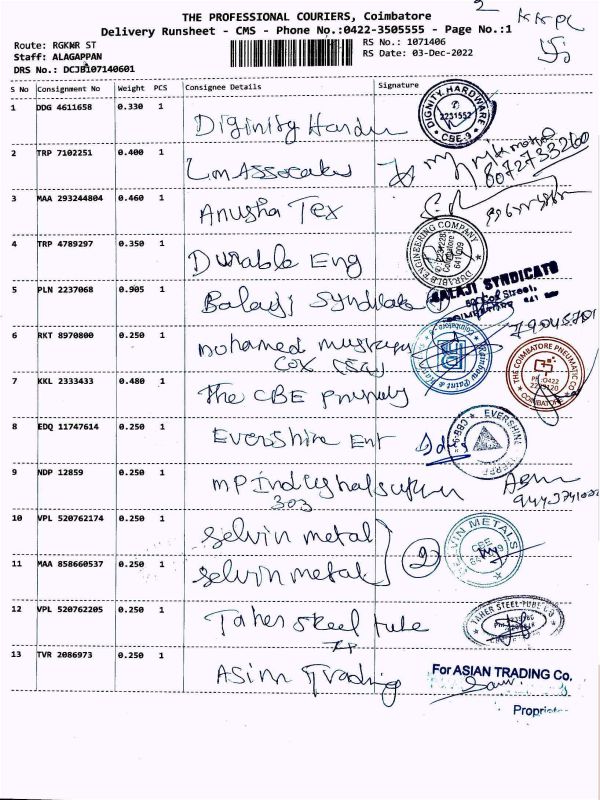 THE PROFESSIONAL COURIERS, Coimbatore
Delivery Runsheet - CMS - Phone No.:0422-3505555 - Page No.:1
2
KKPL
Route: RGKNR ST
RS No.: 1071406
Staff: ALAGAPPAN
RS Date: 03-Dec-2022
DRS No.: DCJB107140601
S No Consignment No Weight PCS Consignee Details Signature
1 DDG 4611658 0.330 1
Diginity Hardw
DIGNITY HARDWARE
2231552
CBE-9
2 TRP 7102251 0.400 1
Lm Assocates
8072733260
3 MAA 293244804 0.460 1
Anusha Tex
4 TRP 4789297 0.350 1
Durable Eng
DURABLE ENGINEERING COMPANY
Coimbatore
641009
5 PLN 2237068 0.905 1
Balaji Syndicate
BALAJI SYNDICATE
6 RKT 8970800 0.250 1
mohamed
7 KKL 2333433 0.480 1
The CBE
THE COIMBATORE PNEUMATIC CO
COIMBATORE
8 EDQ 11747614 0.250 1
Evershine Ent
EVERSHINE
CBE-9
9 NDP 12859 0.250 1
303
10 VPL 520762174 0.250 1
Selvin metal
11 MAA 858660537 0.250 1
Selvin metal
2
SELVIN METALS
CBE
12 VPL 520762205 0.250 1
Taher steel tube
TAHER STEEL TUBE CO
13 TVR 2086973 0.250 1
Asian Trading
For ASIAN TRADING Co.
Proprietor